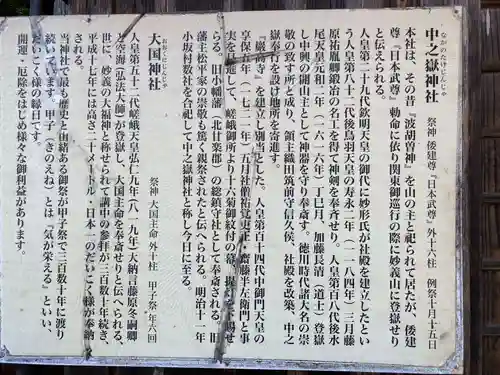 中之嶽神社
なかのたけじんじゃ
祭神 倭建尊『日本武尊』外十六柱 例祭十月十五日
本社は、その昔『波胡曽神』を山の主と祀られて居たが、倭建
尊『日本武尊』勅命に依り関東御巡行の際に妙義山に登嶽せり
と伝えられる。
人皇第二十九代欽明天皇の御代に妙形氏が社殿を建立したとい
う人皇第八十二代後鳥羽天皇の寿永二年(一一八四年)三月藤
原祐胤卿鍛冶の名工を得て神剣を奉斉せり、人皇第百八代後水
尾天皇元和二年(一六一六年)丁巳月、加藤長清(道士)登嶽
し中興の開山主として神器を守り奉斉す。徳川時代諸大名の崇
敬の致す所と成り、領主織田筑前守信久侯、社殿を改築、中之
嶽奉行を設け地所を寄進す。
『巌高寺』を建立し別当とした。人皇第百十四代中御門天皇の
享保五年(一七二一年)五月社僧祐覚更正・齋藤半左衛門と事
実を言進して、嵯峨御所より十六菊御紋付の幕、提灯を下賜せ
らる。旧小幡藩(北甘楽郡)の総鎮守社として奉斉さる。旧
藩主松平家の崇敬も篤く親祭されたと伝へられる。明治十一年
小坂村数社を合祀して中之嶽神社と称し今日に至る。
大国神社
おおくにじんじゃ
祭神 大国主命 外十柱 甲子祭年六回
人皇第五十二代嵯峨天皇弘仁九年(八一九年)大納言藤原冬嗣卿
と空海(弘法大師)が登嶽し、大国主命を奉斎せりと伝へられる、
世に、妙義の大福神と称せられて講中の参拝が三百数十年続き、
平成十七年には高さ二十メートル・日本一のだいこく様が奉納
される。
当神社で最も歴史と由緒ある御祭が甲子祭で三百数十年に渡り
続いています。甲子(きのえね)とは『気が栄える』といい、
だいこく様の縁日です。
開運・厄除をはじめ様々な御利益があります。